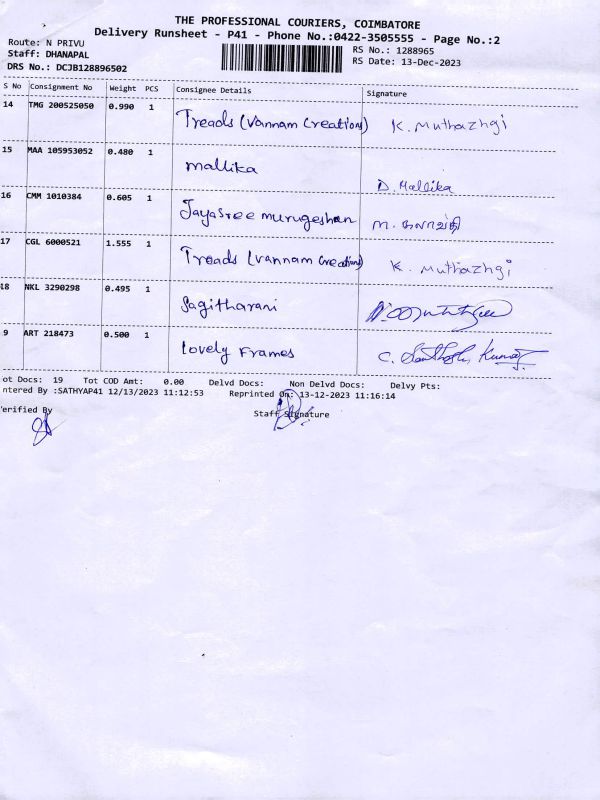 THE PROFESSIONAL COURIERS, COIMBATORE
Delivery Runsheet - P41 - Phone No.:0422-3505555 - Page No.:2
Route: N PRIVU
RS No.: 1288965
Staff: DHANAPAL
RS Date: 13-Dec-2023
DRS No.: DCJB128896502
S No Consignment No Weight PCS Consignee Details Signature
14 TMG 200525050 0.990 1 Treads (Vannam Creations) K. Muthazhgi
15 MAA 105953052 0.480 1 mallika D. Mallika
16 CMM 1010384 0.605 1 Jayasree murugeshan
17 CGL 6000521 1.555 1 Treads (vannam creations) K. Muthazhgi
18 NKL 3290298 0.495 1 Sagitharani
9 ART 218473 0.500 1 lovely Frames C. Santhosh Kumar
ot Docs: 19 Tot COD Amt: 0.00 Delvd Docs: Non Delvd Docs: Delvy Pts:
ntered By :SATHYAP41 12/13/2023 11:12:53 Reprinted On: 13-12-2023 11:16:14
erified By
Staff Signature